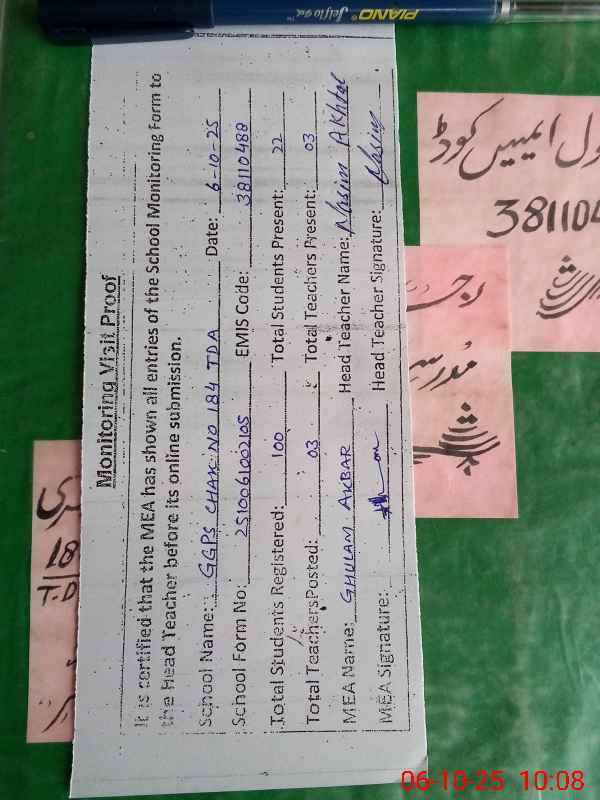 PIANO® Jelflo
Monitoring Visit Proof
It is certified that the MEA has shown all entries of the School Monitoring Form to
the Head Teacher before its online submission.
School Name: GGPS CHAK NO 184 TDA Date: 6-10-25
School Form No: 2510061002105 EMIS Code: 38110488
Total Students Registered: 100 Total Students Present: 22
Total Teachers Posted: 03 Total Teachers Present: 03
MEA Name: GHULAM AKBAR Head Teacher Name: Nasim Akhtar
MEA Signature: Head Teacher Signature: Nasim
ول ایمیس کوڈ
381104
رجـ
مدرسہ
ری
18
T.D
06-10-25 10:08